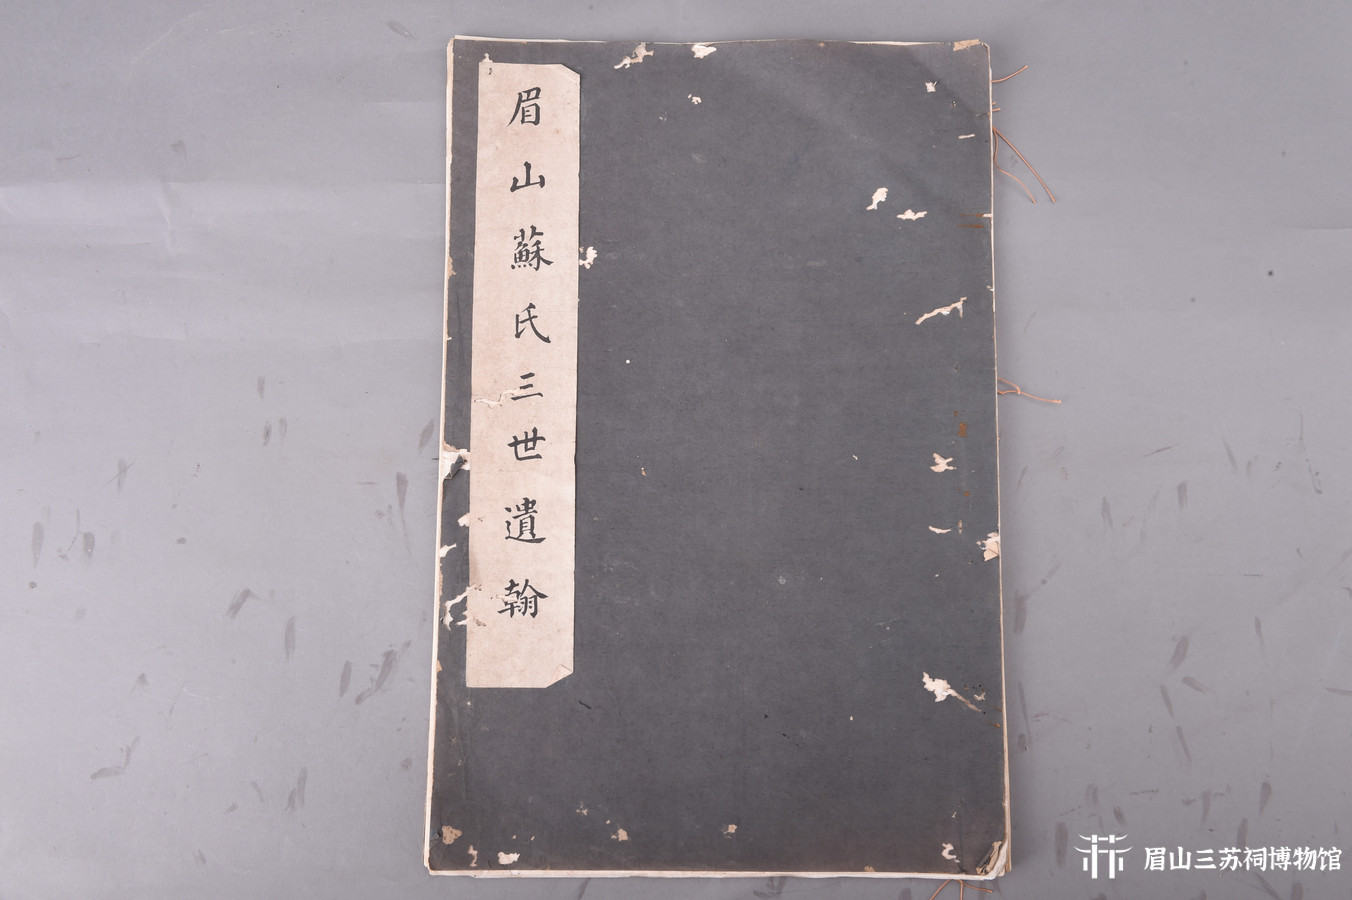 眉山蘇氏三世遺翰
眉山三苏祠博物馆